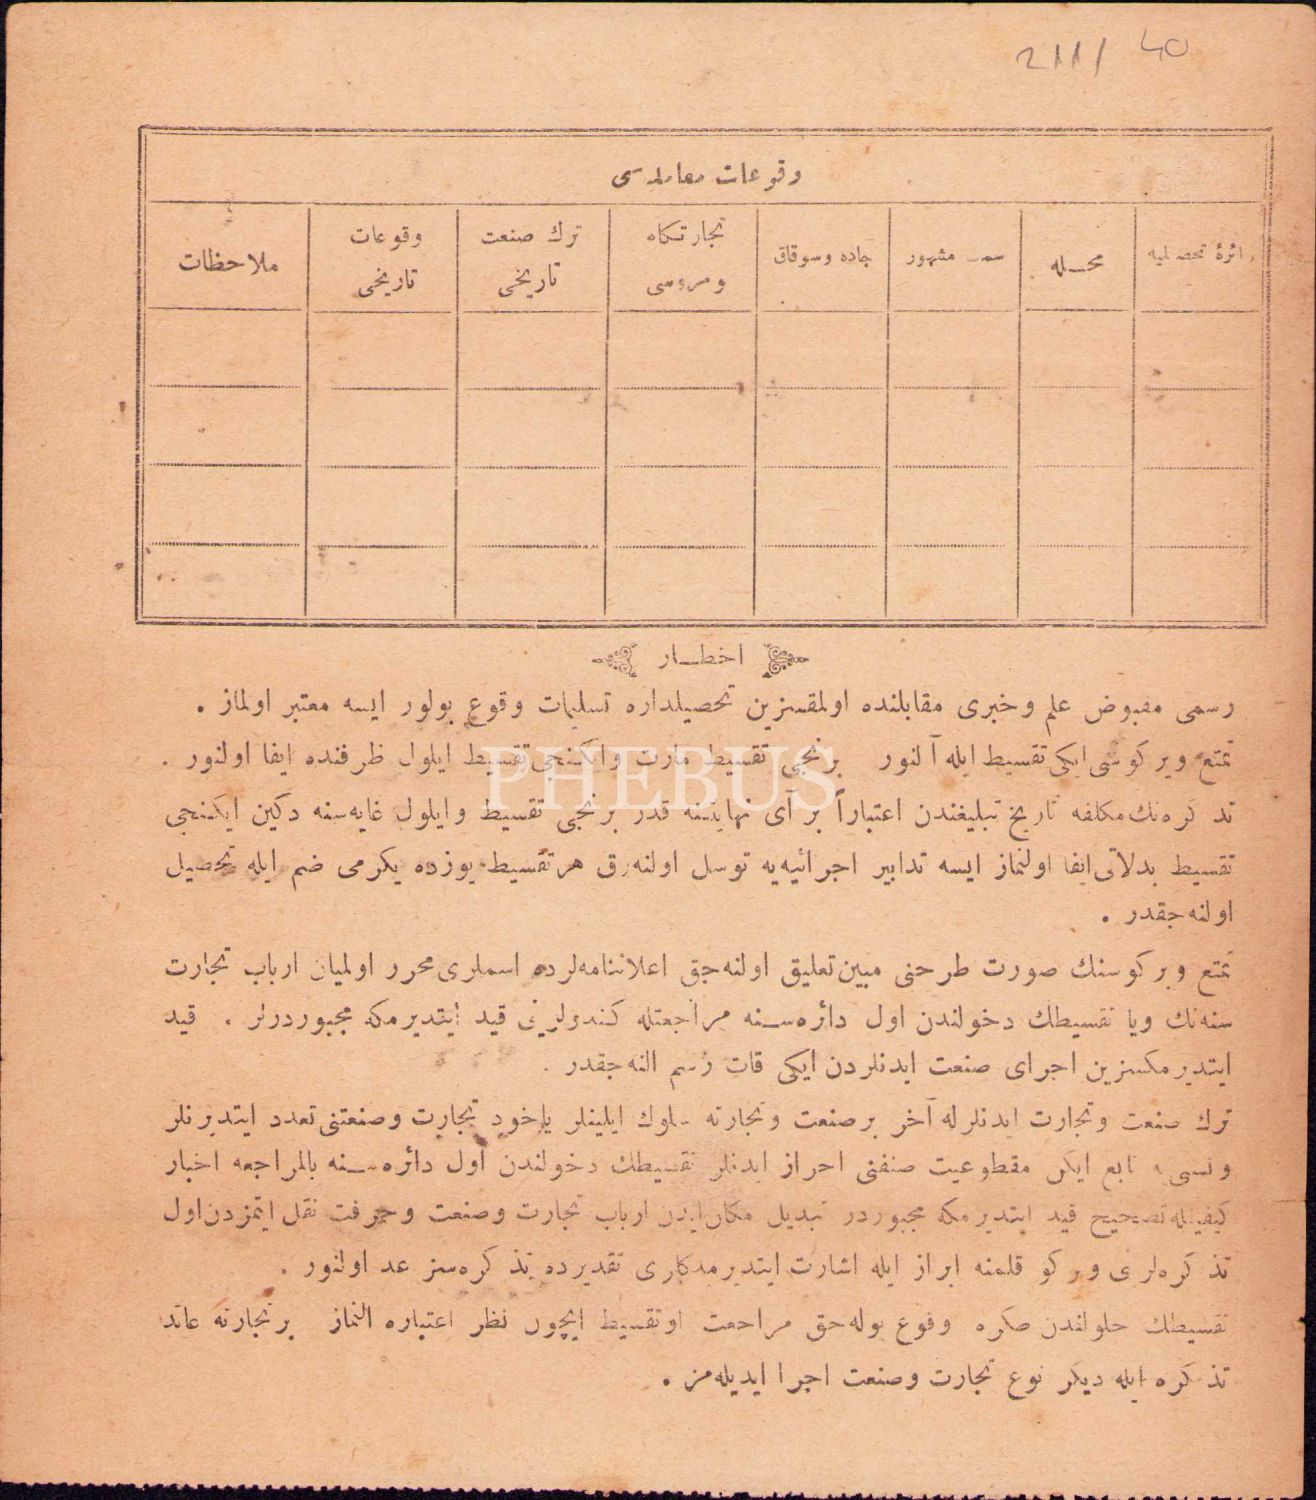 211/ 40
وقوعات معامله سی
دائرۀ تحصیلیه
محـله
سمت مشهور
جاده وسوقاق
تجارتكاه
ونمروسی
ترك صنعت
تاریخی
وقوعات
تاریخی
ملاحظات
اخطـار
رسمی مقبوض علم وخبری مقابلنده اولمقسزین تحصیلداره تسلیمات وقوع بولور ایسه معتبر اولماز .
تمتع ویركوسی ایكی تقسیط ایله آلنور برنجی تقسیط مارت وایكنجی تقسیط ایلول ظرفنده ایفا اولنور .
تذكره‌نك مكلفه تاریخ تبلیغندن اعتباراً برآی نهایتنه قدر برنجی تقسیط وایلول غایه‌سنه دكین ایكنجی
تقسیط بدلاتی ایفا اولنماز ایسه تدابیر اجرائیه‌یه توسل اولنه‌رق هرتقسیط یوزده یكرمی ضم ایله تحصیل
اولنه‌جقدر .
تمتع ویركوسنك صورت طرحنی مبین تعلیق اولنه‌جق اعلاننامه‌لرده اسملری محرر اولمیان ارباب تجارت
سنه‌نك ویا تقسیطك دخولندن اول دائره‌سـنه مراجعتله كندولرینی قید ایتدیرمكه مجبوردرلر . قید
ایتدیرمكسزین اجرای صنعت ایدنلردن ایكی قات رسم النه‌جقدر .
ترك صنعت وتجارت ایدنلرله آخر برصنعت وتجارته سلوك ایلینلر یاخود تجارت وصنعتنی تعدد ایتدیرنلر
ونسبی‌یه تابع ایكن مقطوعیت صنفنی احراز ایدنلر تقسیطك دخولندن اول دائره‌سـنه بالمراجعه اخبار
كیفیتله تصحیح قید ایتدیرمكه مجبوردر تبدیل مكان ایدن ارباب تجارت وصنعت وحرفت نقل ایتمزدن اول
تذكره‌لری ویركو قلمنه ابراز ایله اشارت ایتدیرمدكلری تقدیرده تذكره‌سز عد اولنور .
تقسیطك حلولندن صكره وقوع بوله‌جق مراجعت اوتقسیط ایچون نظر اعتباره النماز برتجارته عائد
تذكره ایله دیكر نوع تجارت وصنعت اجرا ایدیله‌مز .
PHEBUS